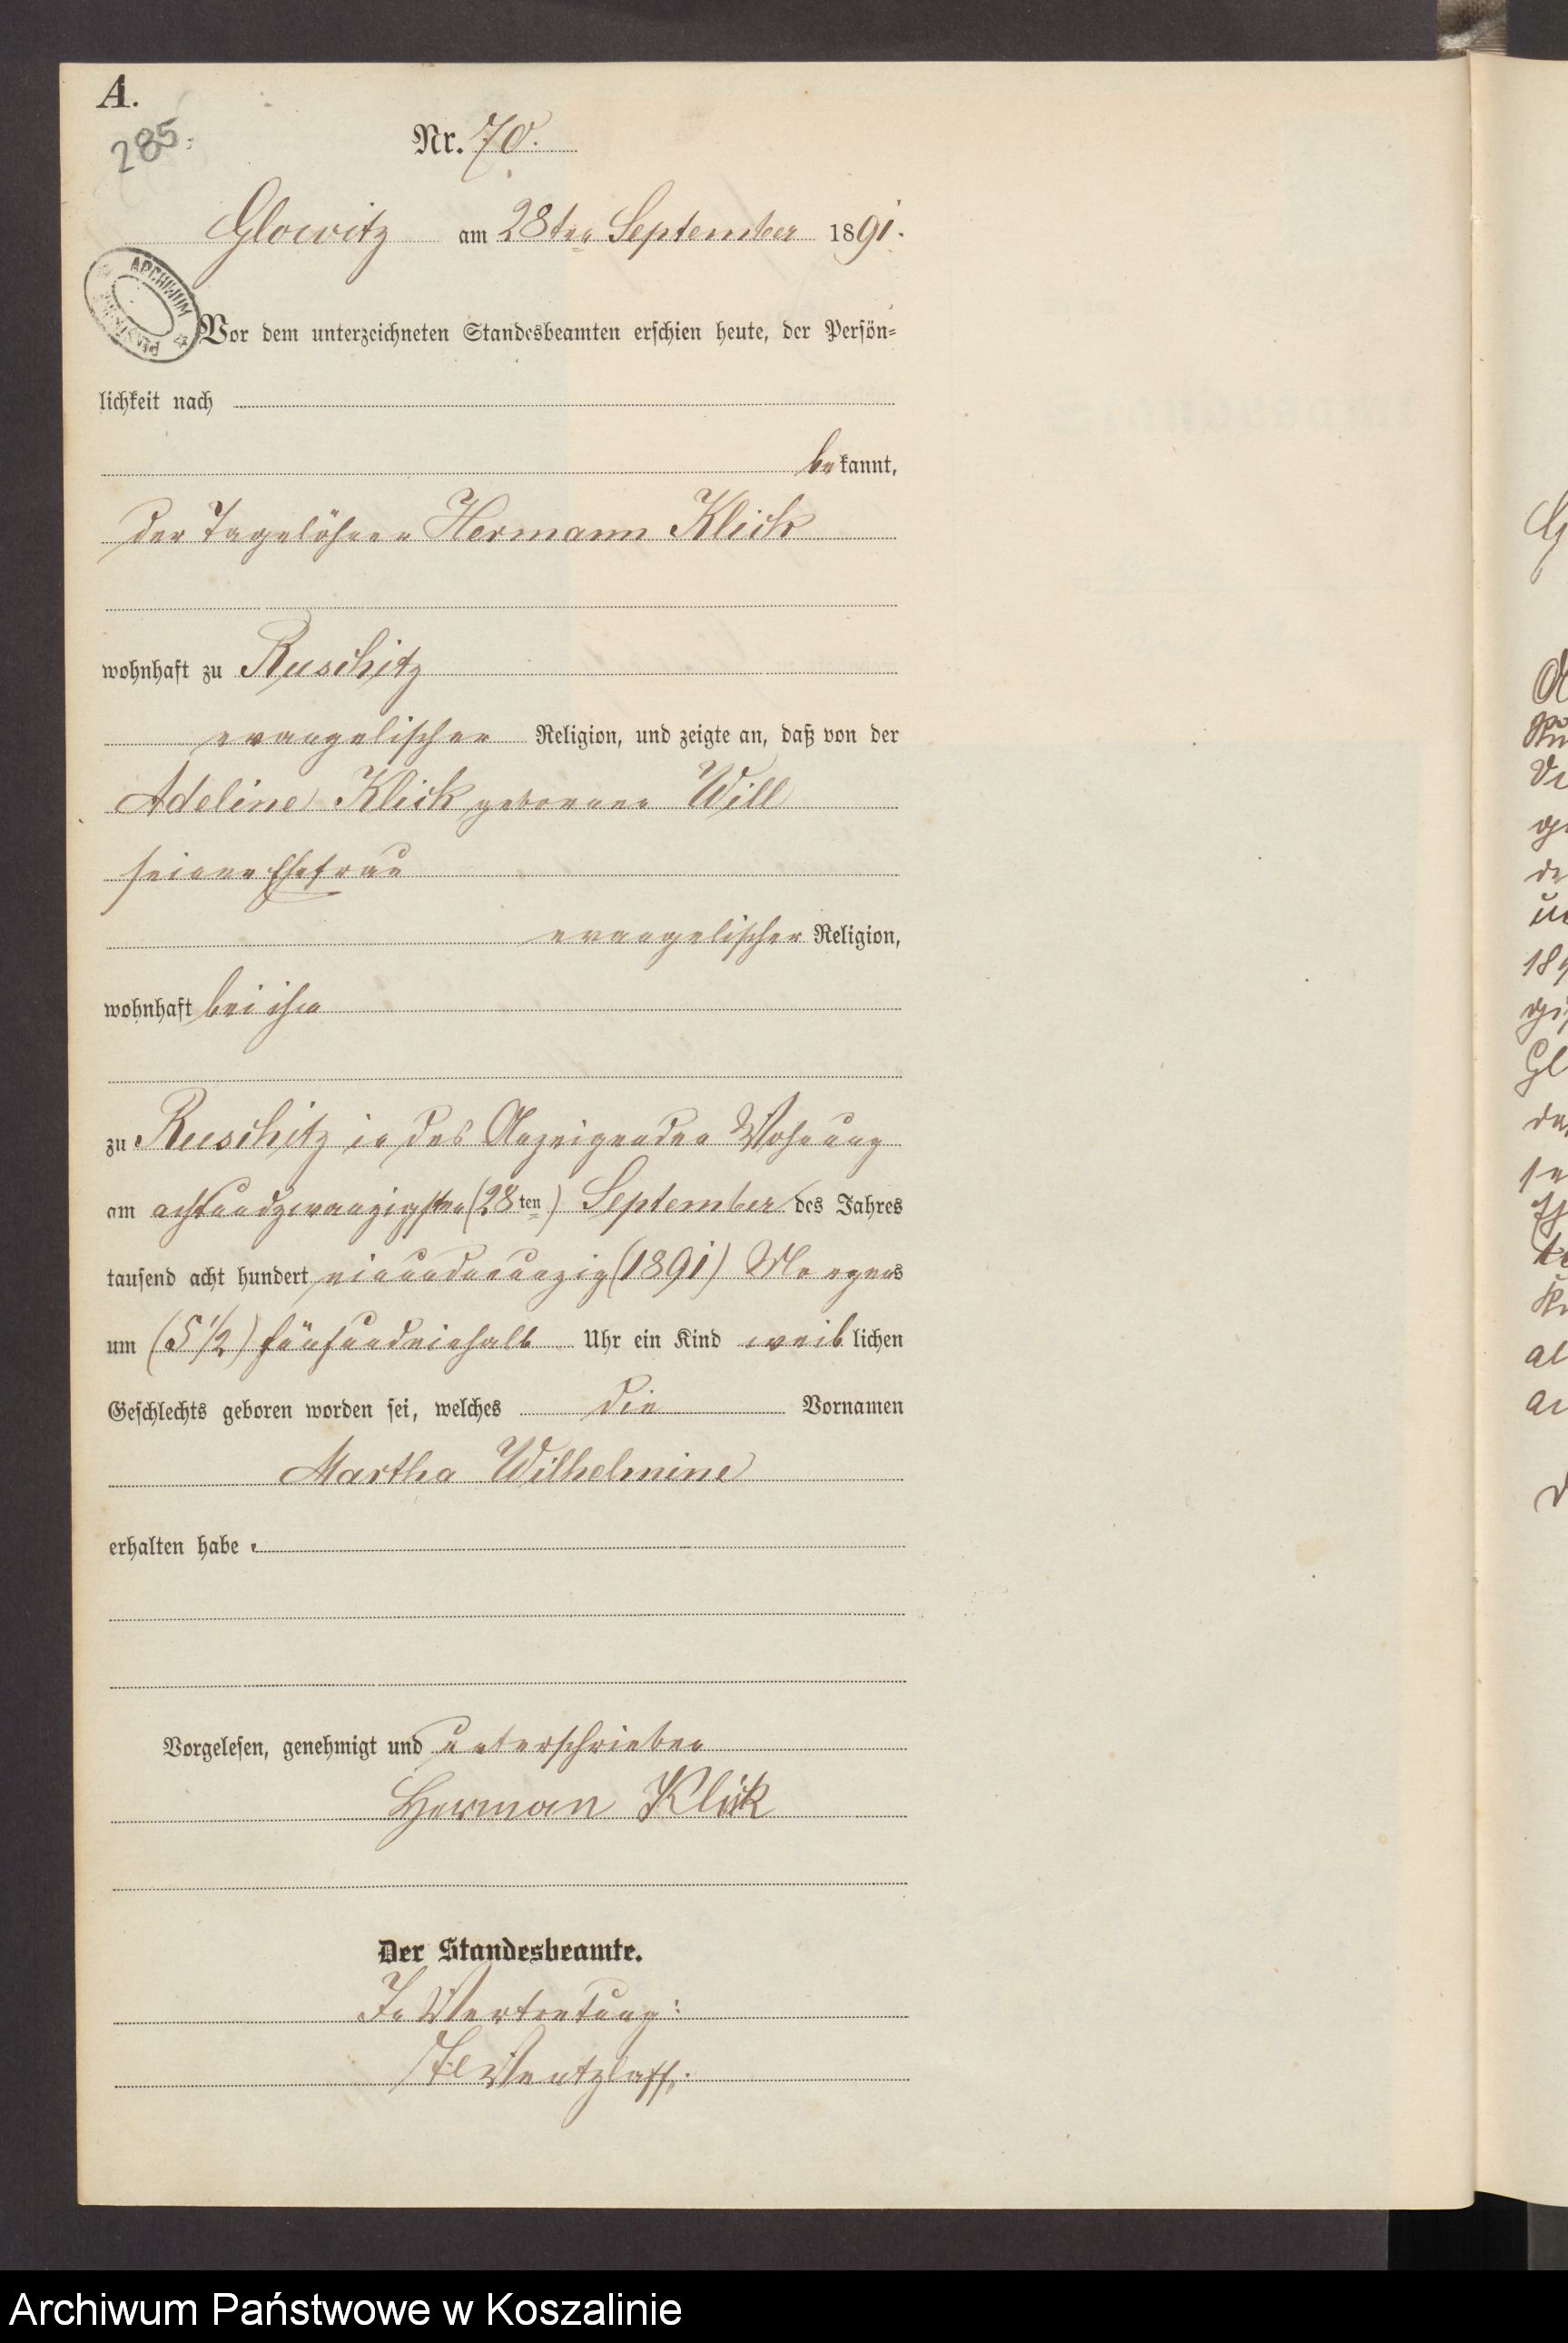 A.
285.
Nr. 70.
Glowitz am 28ten September 1891.
ARCHIWUM
Vor dem unterzeichneten Standesbeamten erschien heute, der Persön=
lichkeit nach
bekannt,
der Tagelöhner Hermann Klick
wohnhaft zu Ruschitz
evangelischer Religion, und zeigte an, daß von der
Adeline Klick geborene Will
seiner Ehefrau
evangelischer Religion,
wohnhaft bei ihm
zu Ruschitz in des Anzeigenden Wohnung
am achtundzwanzigsten (28ten) September des Jahres
tausend acht hundert einundneunzig (1891) Morgens
um (5 1/2) fünfundeinhalb Uhr ein Kind weiblichen
Geschlechts geboren worden sei, welches die Vornamen
Martha Wilhelmine
erhalten habe.
Vorgelesen, genehmigt und unterschrieben
Herman Klick
Der Standesbeamte.
In Vertretung:
Wentzlaff.
Archiwum Państwowe w Koszalinie